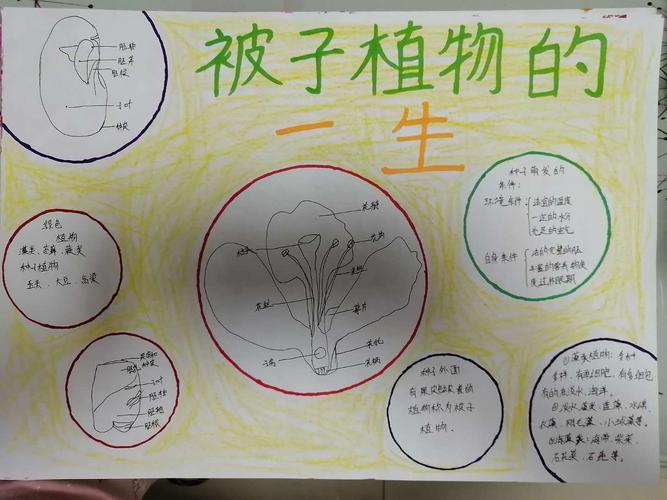 被子植物的
一生
胚轴
胚芽
胚根
子叶
种皮
绿色
植物
藻类、苔藓、蕨类
种子植物
玉米、大豆、
种子萌发的
条件:
环境条件:
适宜的温度
一定的水分
充足的空气
自身条件
活的完整的胚
丰富的营养物质
度过休眠期
花瓣
花药
花丝
柱头
花柱
萼片
子房
花托
花柄
果皮和
种皮
胚乳
子叶
胚芽
胚轴
胚根
种子外面
有果皮包裹着的
植物称为被子
植物。
①藻类植物:
有的在淡水、海洋。
②淡水藻类:
衣藻、
③海藻类:海带、紫菜、
石花菜、石莼等。